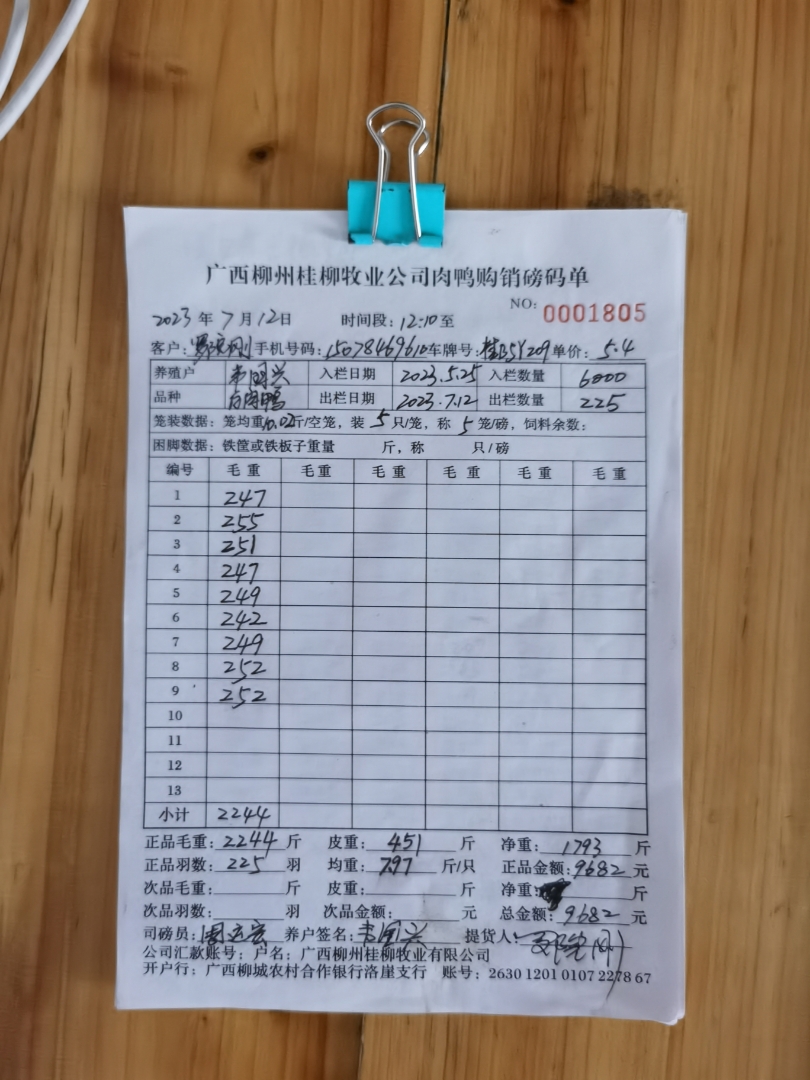 广西柳州桂柳牧业公司肉鸭购销磅码单
NO: 0001805
2023年7月12日 时间段:12:10至
客户: 手机号码:15078469610 车牌号: 单价:5.4
养殖户 韦国兴 入栏日期 2023.5.25 入栏数量 6000
品种 白肉鸭 出栏日期 2023.7.12 出栏数量 225
笼装数据:笼均重10.02斤/空笼,装5只/笼,称5笼/磅,饲料余数:
困脚数据:铁筐或铁板子重量 斤,称 只/磅
编号 毛重 毛重 毛重 毛重 毛重 毛重
1 247
2 255
3 251
4 247
5 249
6 242
7 249
8 252
9 252
10
11
12
13
小计 2244
正品毛重:2244斤 皮重:451斤 净重:1793斤
正品羽数:225羽 均重:7.97斤/只 正品金额:9682元
次品毛重: 斤 皮重: 斤 净重: 斤
次品羽数: 羽 次品金额: 元 总金额:9682元
司磅员: 养户签名:韦国兴 提货人:
公司汇款账号:户名:广西柳州桂柳牧业有限公司
开户行:广西柳城农村合作银行洛崖支行 账号:2630 1201 0107 2278 67